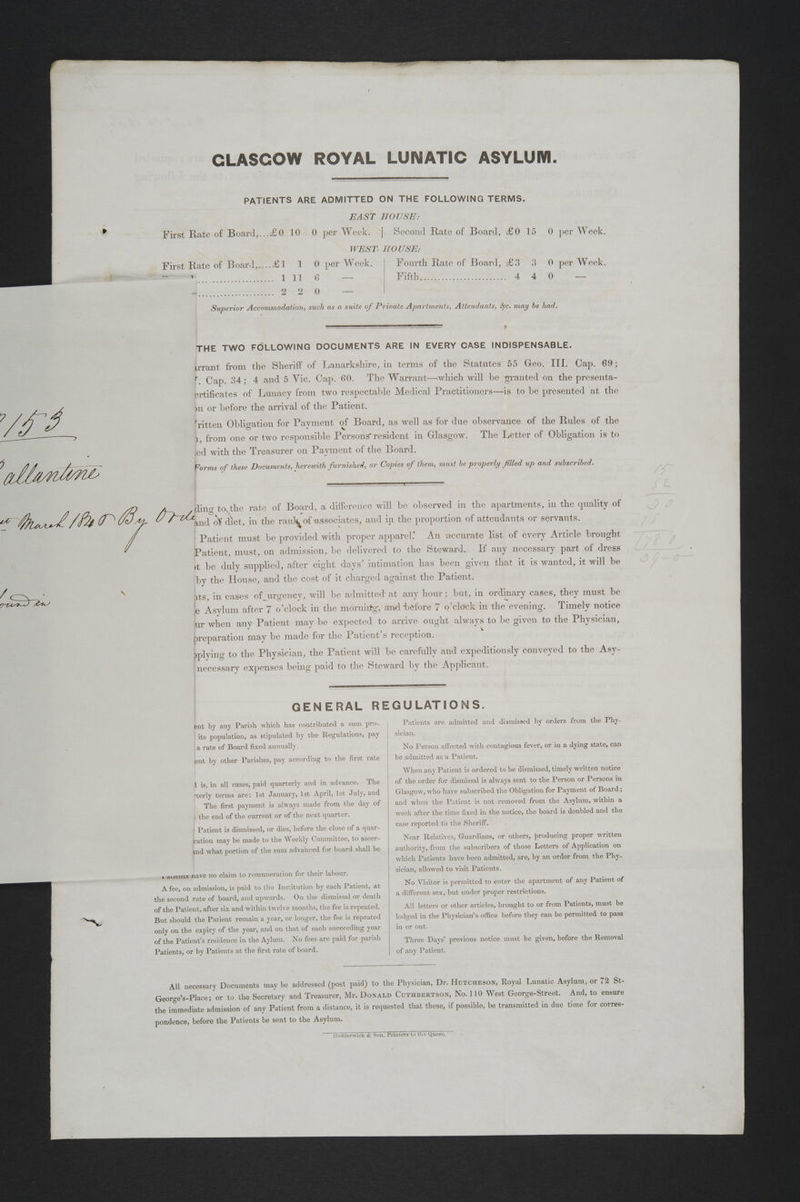 GLASGOW ROYAL LUNATIC ASYLUM.
PATIENTS ARE ADMITTED ON THE FOLLOWING TERMS.
EAST HOUSE:
First Rate of Board,...£0 10 0 per Week. | Second Rate of Board, £0 15 0 per Week.
WEST HOUSE:
First Rate of Board,.....£1 1 0 per Week.
1 11 6 —
2 2 0 —
Fourth Rate of Board, £3 3 0 per Week.
Fifth,........................... 4 4 0 —
Superior Accommodation, such as a suite of Private Apartments, Attendants, &c. may be had.
THE TWO FOLLOWING DOCUMENTS ARE IN EVERY CASE INDISPENSABLE.
arrant from the Sheriff of Lanarkshire, in terms of the Statutes 55 Geo. III. Cap. 69;
. Cap. 34; 4 and 5 Vic. Cap. 60. The Warrant—which will be granted on the presenta-
ertificates of Lunacy from two respectable Medical Practitioners—is to be presented at the
on or before the arrival of the Patient.
ritten Obligation for Payment of Board, as well as for due observance of the Rules of the
, from one or two responsible Persons resident in Glasgow. The Letter of Obligation is to
ed with the Treasurer on Payment of the Board.
Forms of these Documents, herewith furnished, or Copies of them, must be properly filled up and subscribed.
153
allantine
March 1840 By Orde
ding to the rate of Board, a difference will be observed in the apartments, in the quality of
and of diet, in the rank of associates, and in the proportion of attendants or servants.
Patient must be provided with proper apparel. An accurate list of every Article brought
Patient, must, on admission, be delivered to the Steward. If any necessary part of dress
t be duly supplied, after eight days' intimation has been given that it is wanted, it will be
by the House, and the cost of it charged against the Patient.
nts, in cases of urgency, will be admitted at any hour; but, in ordinary cases, they must be
e Asylum after 7 o'clock in the morning, and before 7 o'clock in the evening. Timely notice
ur when any Patient may be expected to arrive ought always to be given to the Physician,
preparation may be made for the Patient's reception.
pplying to the Physician, the Patient will be carefully and expeditiously conveyed to the Asy-
necessary expenses being paid to the Steward by the Applicant.
GENERAL REGULATIONS.
ent by any Parish which has contributed a sum pro-
its population, as stipulated by the Regulations, pay
a rate of Board fixed annually
ent by other Parishes, pay according to the first rate
d is, in all cases, paid quarterly and in advance. The
rterly terms are: 1st January, 1st April, 1st July, and
The first payment is always made from the day of
the end of the current or of the next quarter.
Patient is dismissed, or dies, before the close of a quar-
cation may be made to the Weekly Committee, to ascer-
and what portion of the sum advanced for board shall be
have no claim to remuneration for their labour.
A fee, on admission, is paid to the Institution by each Patient, at
the second rate of board, and upwards. On the dismissal or death
of the Patient, after six and within twelve months, the fee is repeated.
But should the Patient remain a year, or longer, the fee is repeated
only on the expiry of the year, and on that of each succeeding year
of the Patient's residence in the Aylum. No fees are paid for parish
Patients, or by Patients at the first rate of board.
Patients are admitted and dismissed by orders from the Phy-
sician.
No Person affected with contagious fever, or in a dying state, can
be admitted as a Patient.
When any Patient is ordered to be dismissed, timely written notice
of the order for dismissal is always sent to the Person or Persons in
Glasgow, who have subscribed the Obligation for Payment of Board;
and when the Patient is not removed from the Asylum, within a
week after the time fixed in the notice, the board is doubled and the
case reported to the Sheriff.
Near Relatives, Guardians, or others, producing proper written
authority, from the subscribers of those Letters of Application on
which Patients have been admitted, are, by an order from the Phy-
sician, allowed to visit Patients.
No Visitor is permitted to enter the apartment of any Patient of
a different sex, but under proper restrictions.
All letters or other articles, brought to or from Patients, must be
lodged in the Physician's office before they can be permitted to pass
in or out.
Three Days' previous notice must be given, before the Removal
of any Patient.
All necessary Documents may be addressed (post paid) to the Physician, Dr. HUTCHESON, Royal Lunatic Asylum, or 72 St-
George's-Place; or to the Secretary and Treasurer, Mr. DONALD CUTHBERTSON, No. 110 West George-Street. And, to ensure
the immediate admission of any Patient from a distance, it is requested that these, if possible, be transmitted in due time for corres-
pondence, before the Patients be sent to the Asylum.
Hedderwick & Son, Printers to the Queen.